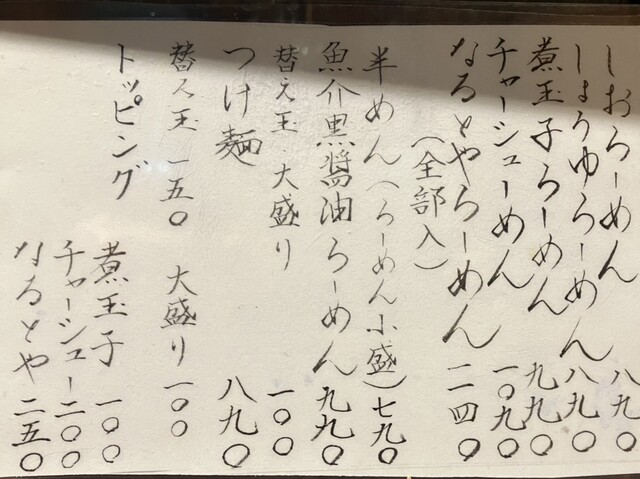 しおらーめん 八九〇
しょうゆらーめん 八九〇
煮玉子らーめん 九九〇
チャーシューめん 一〇九〇
なるとやらーめん 一二四〇
(全部入)
半めん(らーめん小盛)七九〇
魚介黒醤油らーめん 九九〇
替え玉・大盛り 一〇〇
つけ麺 八九〇
替え玉 一五〇 大盛り 一〇〇
トッピング
煮玉子 一〇〇
チャーシュー 二〇〇
なるとや 二五〇